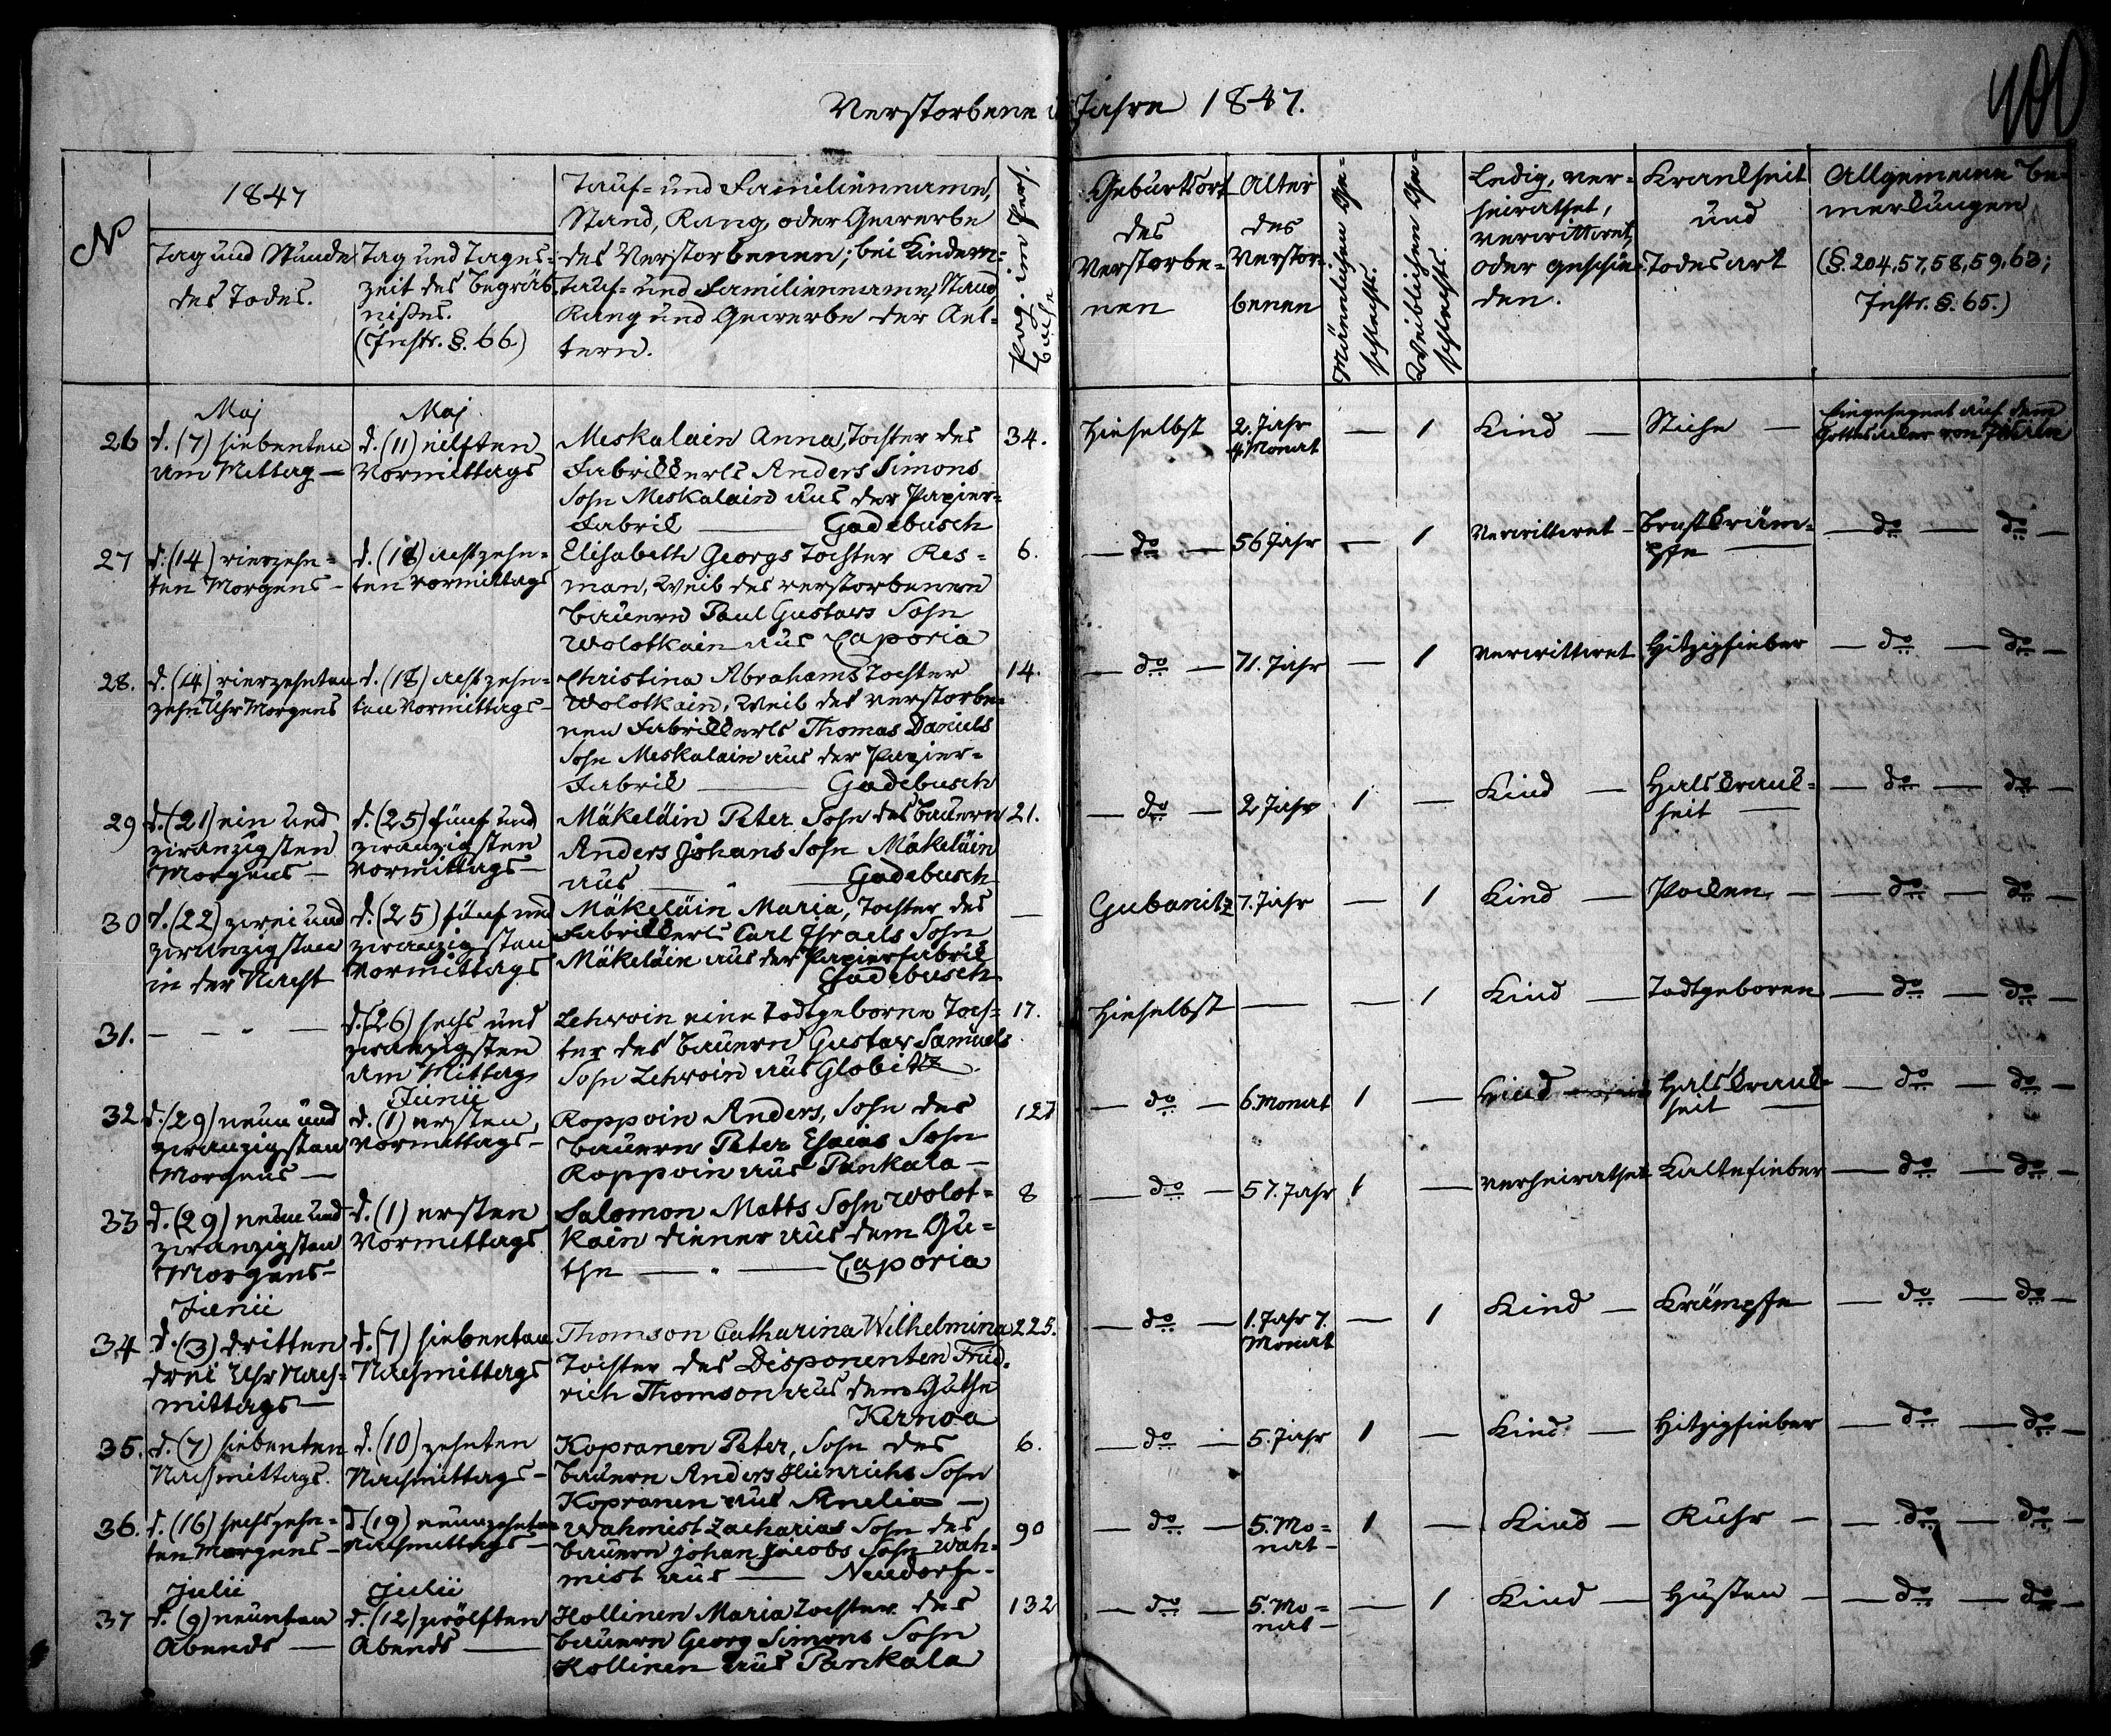 400
Verstorbene i Jahre 1847.
N
1847
Tag und Stunde
des Todes.
Tag und Tages-
zeit des Begräb-
nißes.
(Instr. §. 66.)
Tauf- und Familienname,
Stand, Rang, oder Gewerbe
des Verstorbenen; bei Kindern-
Tauf- und Familienname, Stand,
Rang und Gewerbe der Ael-
tern.
Pag. im Pers.
Buche
Geburtsort
des
Verstorbe-
nen
Alter
des
Verstor-
benen
Männlichen Ge-
schlechts.
Weiblichen Ge-
schlechts.
Ledig, ver-
heirathet,
verwittwet,
oder geschie-
den.
Krankheit
und
Todesart
Allgemeine Be-
merkungen
(§. 204, 57, 58, 59, 63;
Instr. §. 65.)
26
Maj
d. (7) siebenten
am Mittag —
Maj
d. (11) eilften
Vormittags
Meskalain Anna, Tochter des
Fabrikkerls Anders Simons
Sohn Meskalain aus der Papier-
Fabrik — Gadebusch
34.
Hieselbst
2. Jahr
4. Monat
—
1
Kind —
Stiche —
Eingesegnet auf dem
Gottesacker von
27
d. (14) vierzehn-
ten Morgens —
d. (18) achtzehn-
ten Vormittags
Elisabeth Georgs Tochter Res-
man, Weib des verstorbenen
Bauern Paul Gustavs Sohn
Wolotkain aus Caporia
6.
— do —
56 Jahr
—
1
Verwittwet —
Brustkräm-
pfe —
— do — do —
28.
d. (14) vierzehnten
zehn Uhr Morgens
d. (18) achtzehn-
ten Vormittags —
Christina Abrahams Tochter
Wolotkain, Weib des verstorbe-
nen Fabrikkerls Thomas Daniels
Sohn Meskalain aus der Papier-
Fabrik — Gadebusch
14.
— do —
71. Jahr
—
1
Verwittwet
Hitzigfieber
— do — do —
29
d. (21) ein und
zwanzigsten
Morgens —
d. (25) fünf und
zwanzigsten
Vormittags —
Mäkeläin Peter Sohn des Bauern
Anders Johans Sohn Mäkeläin
aus — Gadebusch
21.
— do —
2 Jahr
1
—
Kind —
Halskrank-
heit —
— do — do —
30
d. (22) zwei und
zwanzigsten
in der Nacht
d. (25) fünf und
zwanzigsten
Vormittags
Mäkeläin Maria, Tochter des
Fabrikkerls Carl Israels Sohn
Mäkeläin aus der Papierfabrik
Gadebusch
—
Gubanitz
7. Jahr
—
1
Kind —
Pocken —
— do — do —
31.
— — — —
d. (26) sechs und
zwanzigsten
am Mittag
Lehwoin eine Todtgeborne Toch-
ter des Bauern Gustav Samuels
Sohn Lehwoin aus Globitz
17.
Hieselbst
—
—
1
Kind —
Todtgeboren
— do — do —
32
d. (29) neun und
zwanzigsten
Morgens —
Junii
d. (1) ersten
Vormittags —
Roppoin Anders, Sohn des
Bauern Peter Esaias Sohn
Roppoin aus Pankala —
127
— do —
6. Monat
1
—
Kind
Halskrank-
heit —
— do — do —
33
d. (29) neun und
zwanzigsten
Morgens —
d. (1) ersten
Vormittags
Salomon Matts Sohn Wolot-
kain diener aus dem Gu-
the — Caporia
8
— do —
57. Jahr
1
—
Verheirathet
Kaltefieber
— do — do —
34
Junii
d. (3) dritten
drei Uhr Nach-
mittags —
d. (7) siebenten
Nachmittags
Thomson Catharina Wilhelmina
Tochter des Disponenten Fried-
rich Thomson aus dem Guthe
Kernoa
225.
— do —
1. Jahr 7.
Monat
—
1
Kind —
Krämpfe
— do — do —
35.
d. (7) siebenten
Nachmittags.
d. (10) zehnten
Nachmittags —
Kopranen Peter, Sohn des
Bauern Anders Heinrichs Sohn
Kopranen aus Anelia —
6.
— do —
5. Jahr
1
—
Kind
Hitzigfieber
— do — do —
36.
d. (16) sechszehn-
ten Morgens —
d. (19) neunzehnten
Nachmittags —
Wahmist Zacharias Sohn des
Bauern Johan Jacobs Sohn Wah-
mist aus — Neudorf —
90
— do —
5. Mo-
nat —
1
—
Kind —
Ruhr —
— do — do —
37
Julii
d. (9) neunten
Abends —
Julii
d. (12) zwölften
Abends —
Hollinen Maria Tochter des
Bauern Georg Simons Sohn
Hollinen aus Pankala
132
— do —
5. Mo-
nat —
—
1
Kind —
Husten —
— do — do —